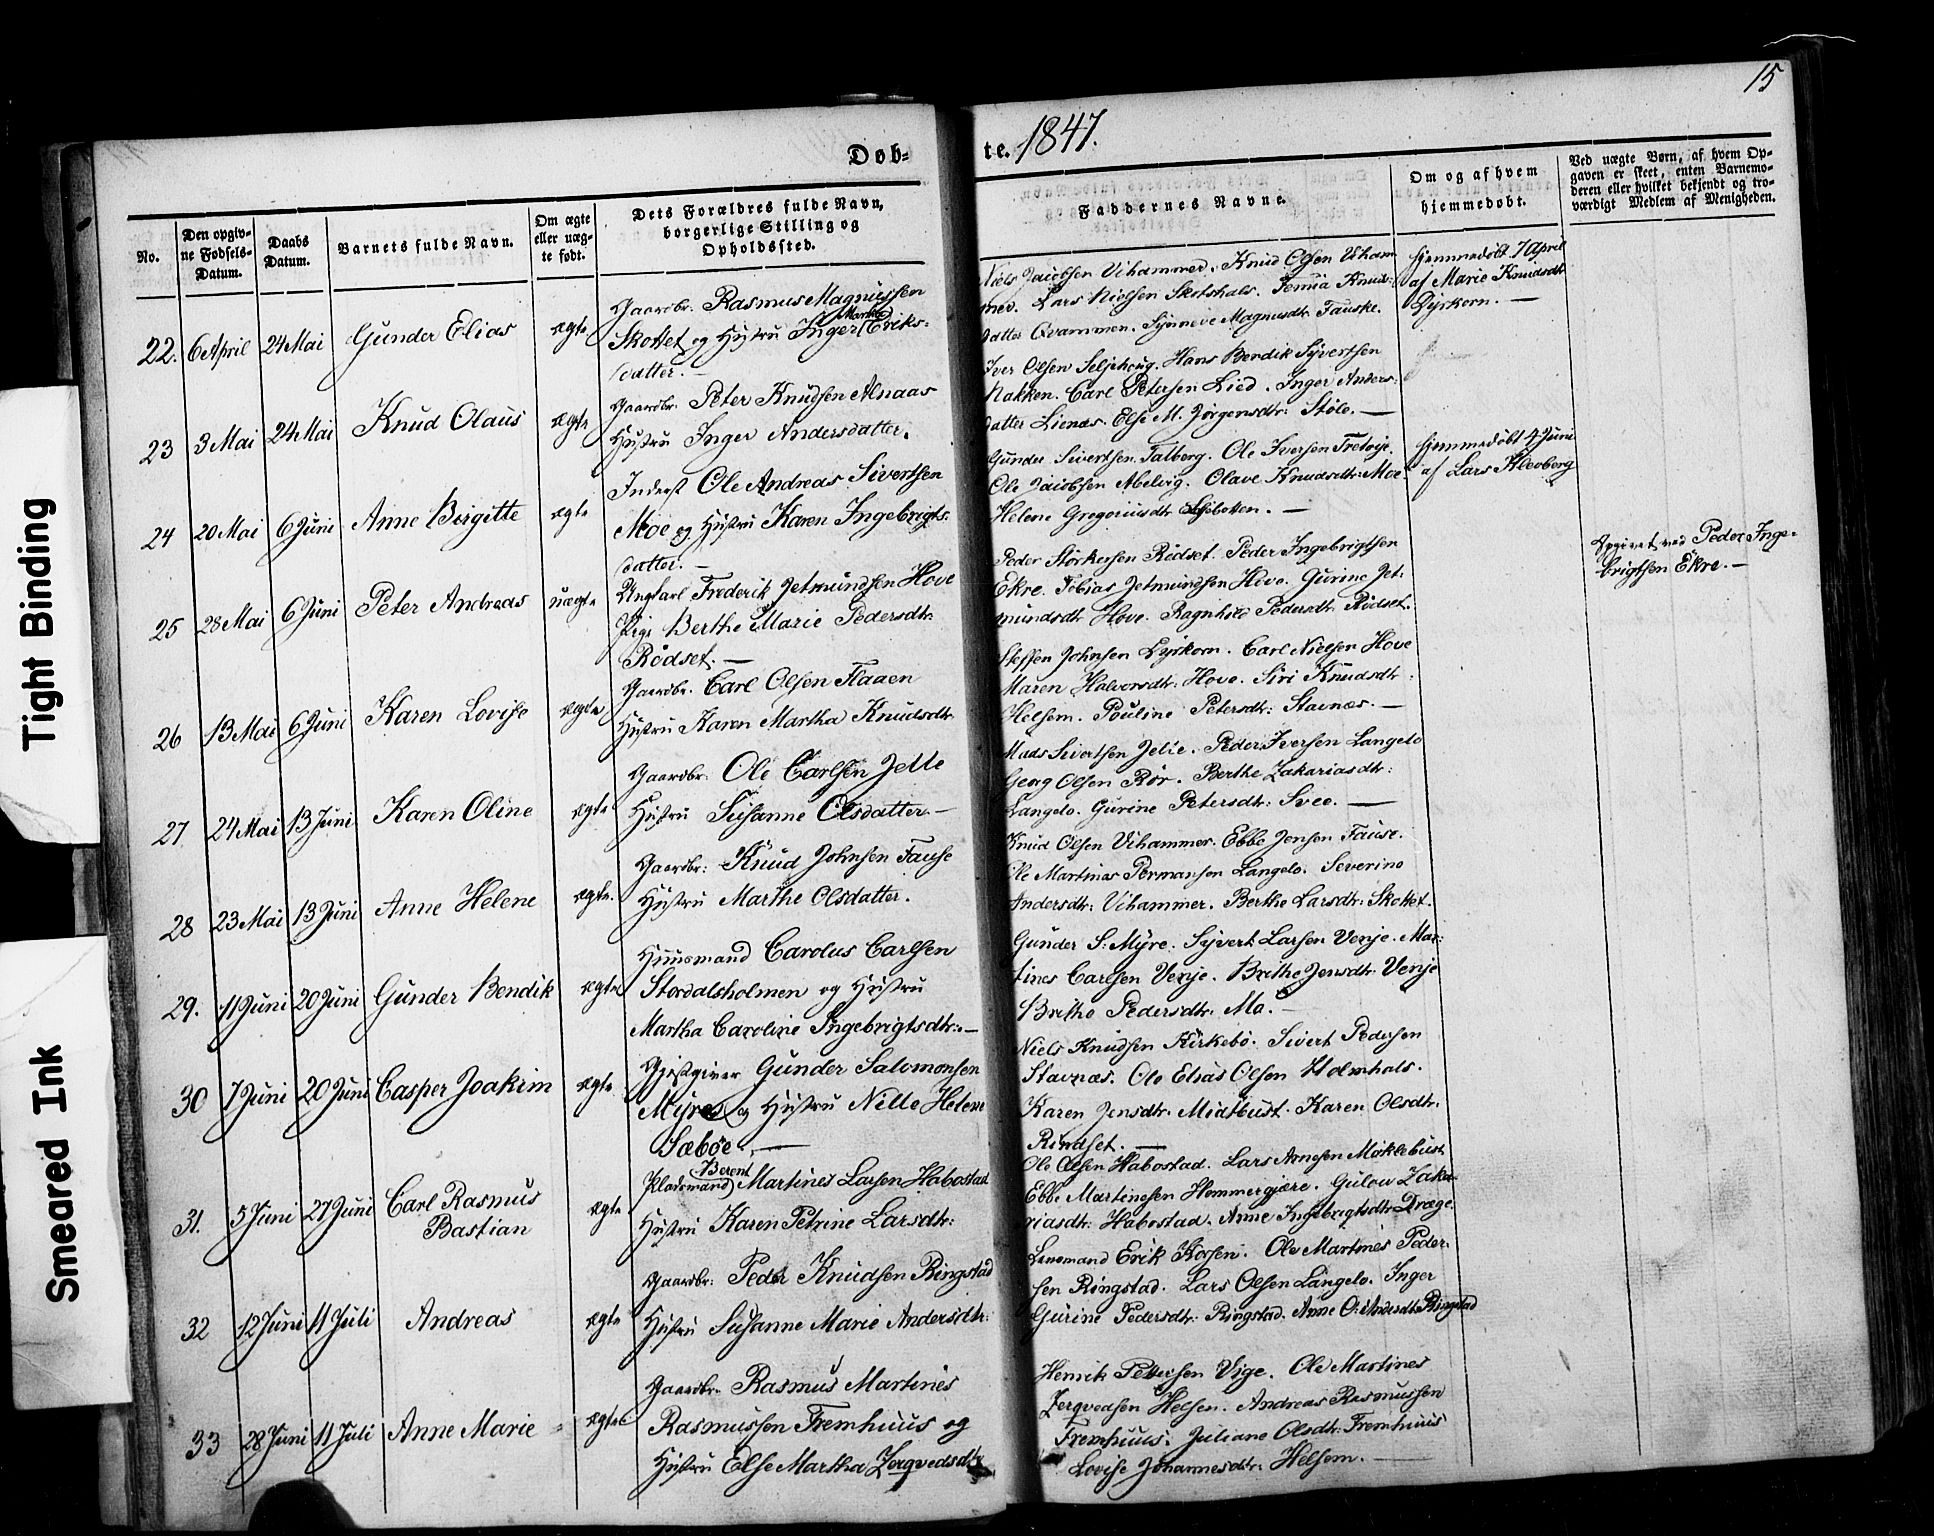 15
Døb-
te. 1847.
No.
Den opgiv-
ne Fødsels-
Datum.
Daabs
Datum.
Barnets fulde Navn.
Om ægte
eller uæg-
te født.
Dets Forældres fulde Navn,
borgerlige Stilling og
Opholdssted.
Faddernes Navne.
Om og af hvem
hjemmedøbt.
Ved uægte Børn, af hvem Op-
gaven er skeet, enten Barnemo-
deren eller hvilket bekjendt og tro-
værdigt Medlem af Menigheden.
22. 6 April 24 Mai Gunder Elias ægte
Gaardbr. Rasmus Magnussen
Skottet og Hustru Inger Marthe Eriks-
datter. —
Niels Jacobsen Vihammer. Knud Olsen Viham
mer. Lars Nielsen Skotshals. Knuds-
datter Qvammen. Synneve Magnusdt. Fauske.
Hjemmedøbt 7 April
af Marie Knudsdt.
Dyrkorn. —
23 3 Mai 24 Mai Knud Olaus ægte
Gaardbr. Peter Knudsen Alnaas
Hustru Inger Andersdatter.
Iver Olsen Seljehoug. Hans Bendik Syvertsen
Nakken. Carl Petersen Lied. Inger Anders-
datter Lienæs. Else M. Jørgensdtr: Støle. —
24 20 Mai 6 Juni Anne Birgitte ægte
Inderst Ole Andreas Sivertsen
Moe og Hustru Karen Ingebrigts-
datter. —
Gunder Sivertsen Talberg. Ole Iversen
Ole Jacobsen Melvig. Olave Knudsdtr: Moe
Helene Gregoriusdt. —
Hjemmedøbt 4 Juni
af Lars Klevberg
25 28 Mai 6 Juni Peter Andreas uægte
Ungkarl Frederik Jetmundsen Hove
Pige Berthe Marie Pedersdtr.
Rødset. —
Peder Størkersen Rødset. Peder Ingebrigtsen
Ekre. Tobias Jetmundsen Hove. Gurine Jet-
mundsdt. Hove. Ragnhild Pedersdt. Rødset.
Opgivet ved Peder Inge-
brigtsen Ekre. —
26 13 Mai 6 Juni Karen Lovise ægte
Gaardbr. Carl Olsen Flaaen
Hustru Karen Martha Knudsdtr
Steffen Johnsen Dyrkorn. Carl Nielsen Hove
Maren Halvorsdtr: Hove. Siri Knudsdtr:
Helsem. Pouline Petersdtr: Stavnæs. —
27 24 Mai 13 Juni Karen Oline ægte
Gaardbr: Ole Carlsen Jelle
Hustru Susanne Olsdatter —
Mads Sivertsen Jelle. Peder Iversen Langelo
Georg Olsen Rør. Berthe Zakariasdtr:
Langelo. Gurine Petersdtr: Svee. —
28 23 Mai 13 Juni Anne Helene ægte.
Gaardbr: Knud Johnsen Fause
Hustru Marthe Olsdatter.
Knud Olsen Vihammer. Ebbe Jensen Fause.
Ole Martinus Permansen Langelo. Severine
Andersdtr: Vihammer. Berthe Larsdtr: Skottet.
29. 11 Juni 20 Juni Gunder Bendik ægte
Huusmand Carolus Carlsen
Stordalsholmen og Hustru
Martha Caroline Ingebrigtsdtr: —
Gunder S. Myre. Syvert Larsen Venje. Mar-
tines Carlsen Venje. Brithe Jensdtr: Venje
Brithe Pedersdtr: Mo. —
30 7 Juni 20 Juni Casper Joakim ægte
Gjestgiver Gunder Salomonsen
Myre og Hustru Nille Helene
Sæbøe. —
Niels Knudsen Kirkebø. Sivert Pedersen
Stavnæs. Ole Elias Olsen Holmhals.
Karen Jensdtr. Midtbust. Karen Olsdtr.
Rindset. —
31. 5 Juni 27 Juni Carl Rasmus
Bastian ægte
Pladsmand Berent Martines Larsen Habostad
Hustru Karen Petrine Larsdtr:
Ole Olsen Habostad. Lars Arnesen Møklebust
Ebbe Martinesen Hammergjære. Gulow Zaka-
riasdtr: Habostad. Anne Ingebrigtsdtr Dræge.
32 12 Juni 11 Juli Andreas ægte
Gaardbr: Peder Knudsen Ringstad
Hustru Susanne Marie Andersdtr:
Lensmand Erik Korsen. Ole Martines Peder-
sen Ringstad. Lars Olsen Langelo. Inger
Gurine Pedersdtr: Ringstad. Anne Andersdt. Ringstad
33 28 Juni 11 Juli Anne Marie ægte
Gaardbr. Rasmus Martines
Rasmussen Fremhuus og
Hustru Else Martha Zerqvedsdtr
Henrik Pettersen Vige. Ole Martines
Zerqvedsen Helsem. Andreas Rasmussen
Fremhuus. Juliane Olsdtr: Fremhuus
Lovise Johannesdtr: Helsem. —
Tight Binding
Smeared Ink